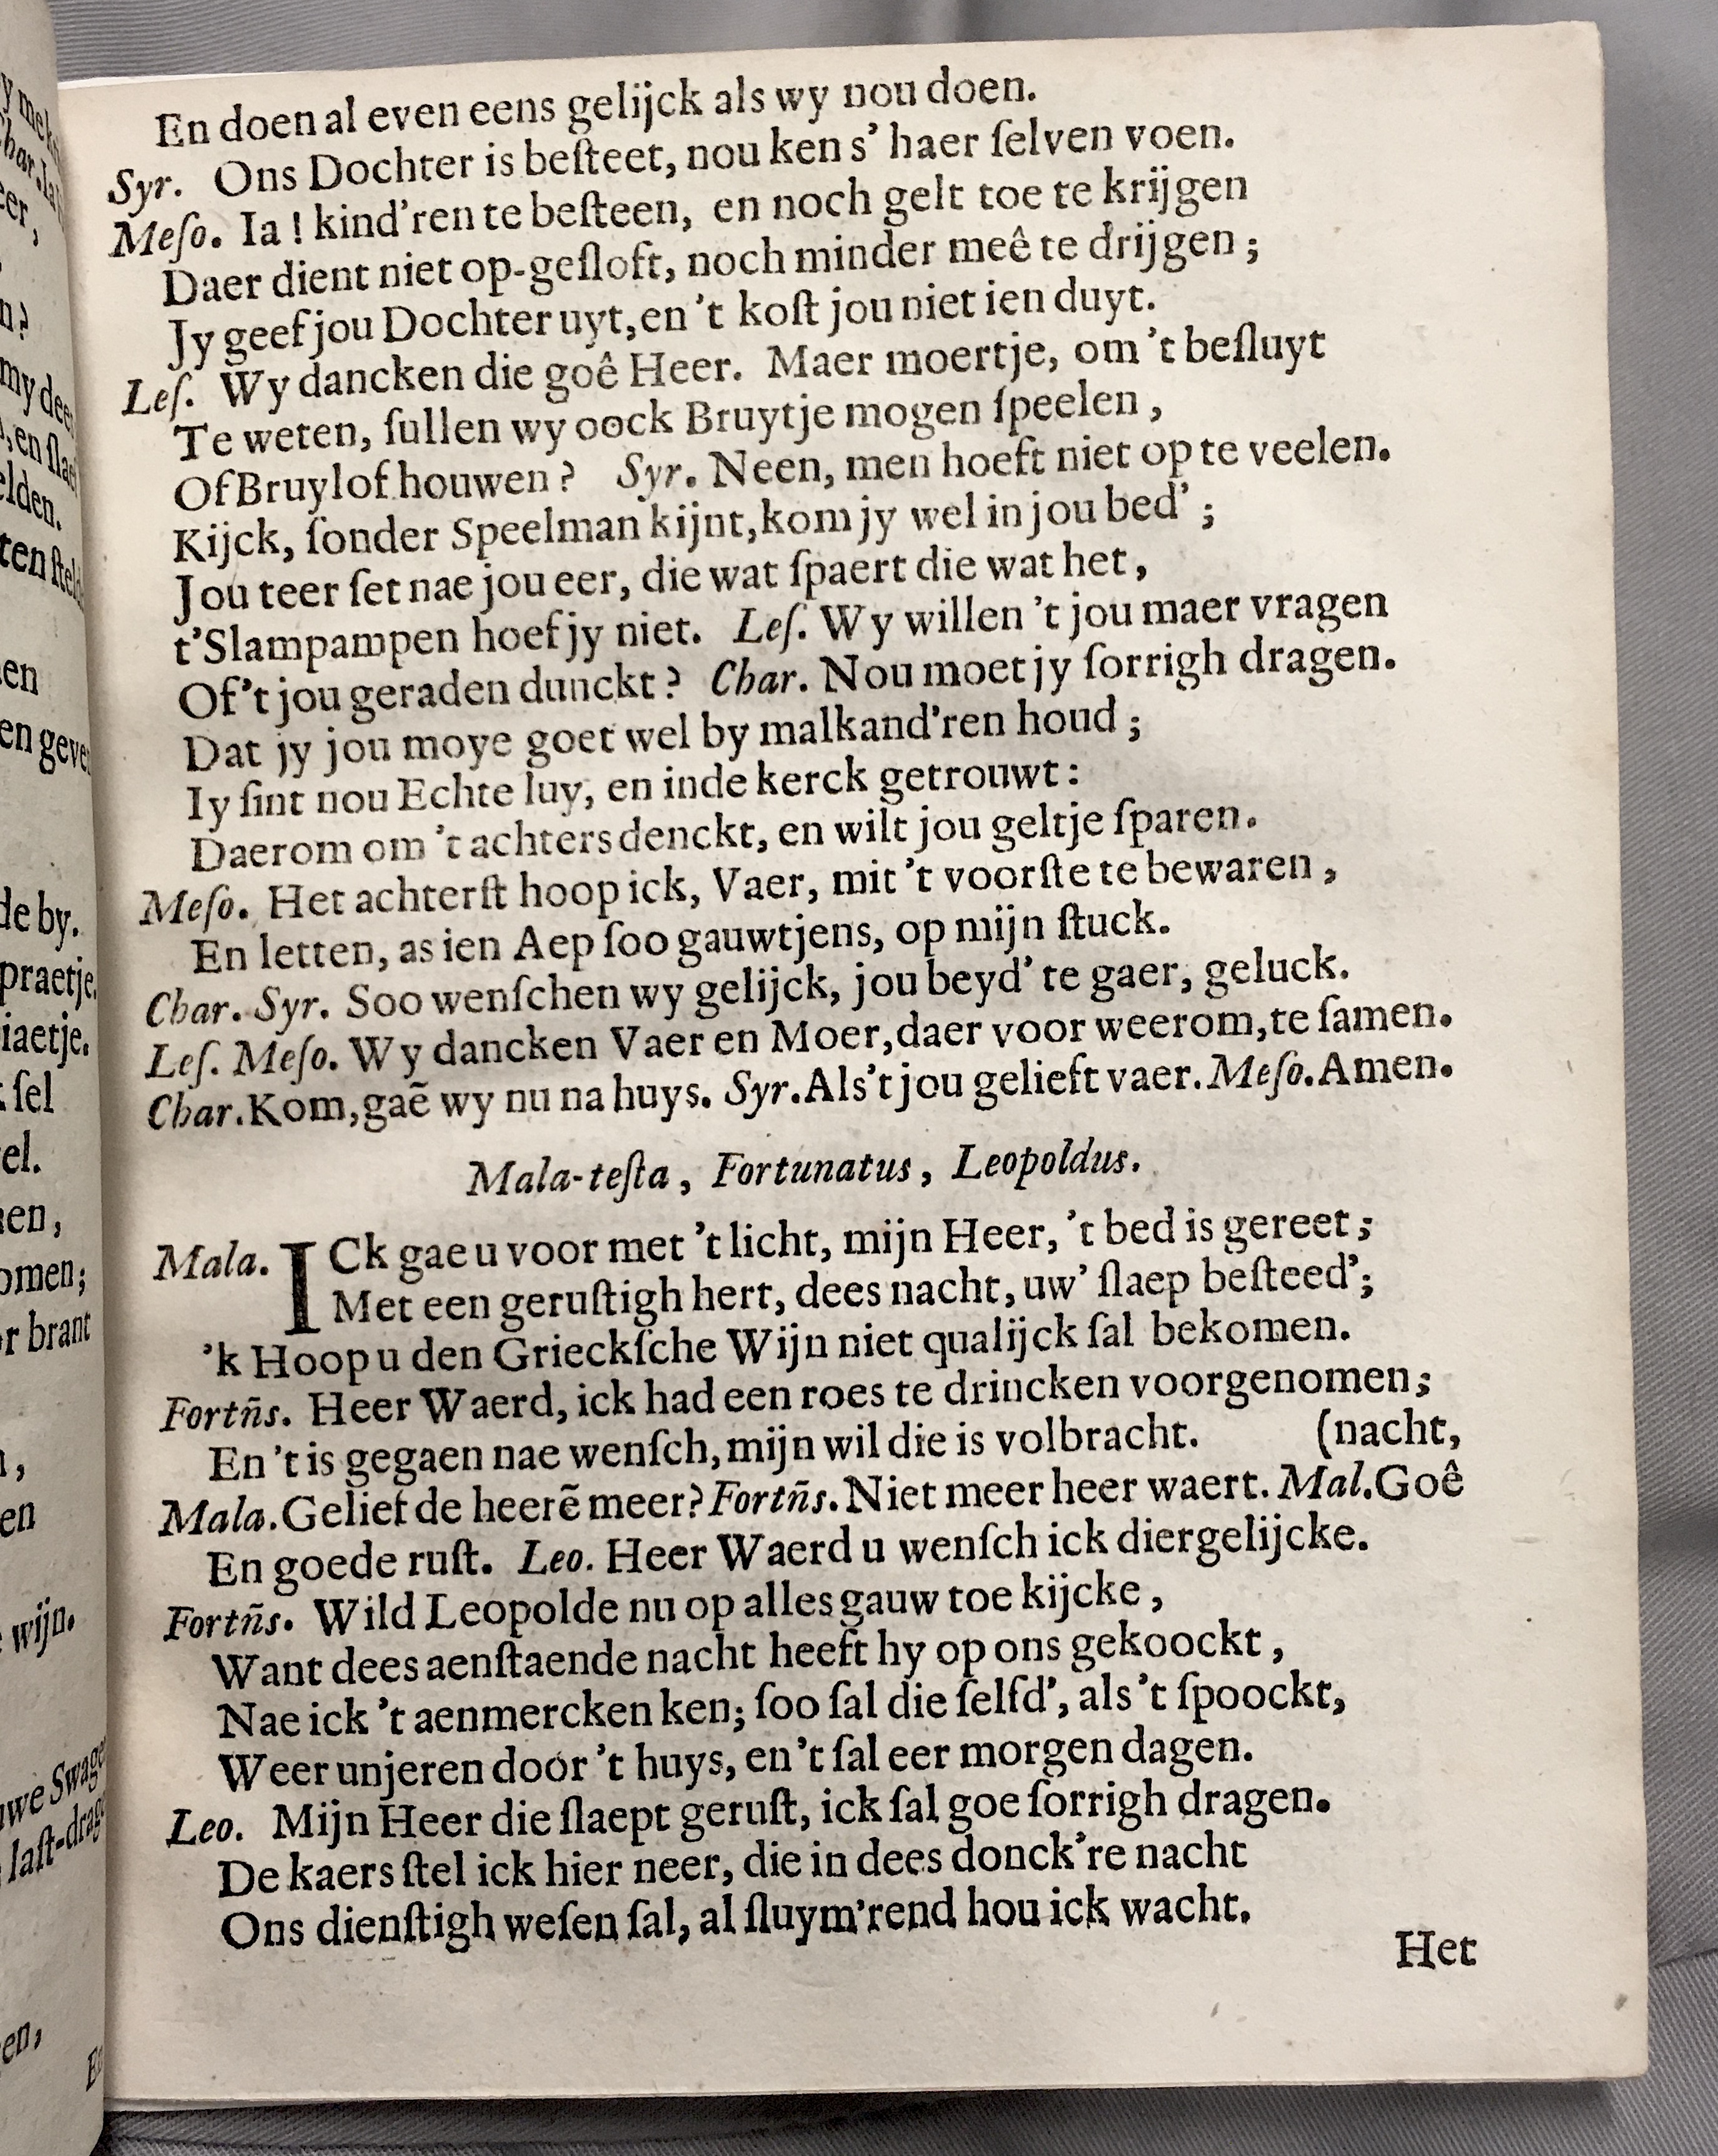 En doen al even eens gelijck als wy nou doen.
Syr. Ons Dochter is beſteet, nou ken s' haer ſelven voen.
Meſo. Ia! kind'ren te beſteen, en noch gelt toe te krijgen
Daer dient niet op-geſloft, noch minder meê te drijgen;
Jy geef jou Dochter uyt, en 't koſt jou niet ien duyt.
Leſ. Wy dancken die goê Heer. Maer moertje, om 't beſluyt
Te weten, ſullen wy oock Bruytje mogen ſpeelen,
Of Bruylof houwen? Syr. Neen, men hoeft niet op te veelen.
Kijck, ſonder Speelman kijnt, kom jy wel in jou bed';
Jou teer ſet nae jou eer, die wat ſpaert die wat het,
t'Slampampen hoef jy niet. Leſ. Wy willen 't jou maer vragen
Of 't jou geraden dunckt? Char. Nou moet jy ſorrigh dragen.
Dat jy jou moye goet wel by malkand'ren houd;
Iy ſint nou Echte luy, en inde kerck getrouwt:
Daerom om 't achters denckt, en wilt jou geltje ſparen.
Meſo. Het achterſt hoop ick, Vaer, mit 't voorſte te bewaren,
En letten, as ien Aep ſoo gauwtjens, op mijn ſtuck.
Char. Syr. Soo wenſchen wy gelijck, jou beyd' te gaer, geluck.
Leſ. Meſo. Wy dancken Vaer en Moer, daer voor weerom, te ſamen.
Char. Kom, gaẽ wy nu na huys. Syr. Als't jou gelieft vaer. Meſo. Amen.
Mala-teſta, Fortunatus, Leopoldus.
Mala. ICk gae u voor met 't licht, mijn Heer, 't bed is gereet;
Met een geruſtigh hert, dees nacht, uw' ſlaep beſteed';
'k Hoop u den Grieckſche Wijn niet qualijck ſal bekomen.
Fortñs. Heer Waerd, ick had een roes te drincken voorgenomen;
En 't is gegaen nae wenſch, mijn wil die is volbracht. (nacht,
Mala. Gelieſ de heerẽ meer? Fortñs. Niet meer heer waert. Mal. Goê
En goede ruſt. Leo. Heer Waerd u wenſch ick diergelijcke.
Fortñs. Wild Leopolde nu op alles gauw toe kijcke,
Want dees aenſtaende nacht heeft hy op ons gekoockt,
Nae ick 't aenmercken ken; ſoo ſal die ſelfd', als 't ſpoockt,
Weer unjeren door 't huys, en 't ſal eer morgen dagen.
Leo. Mijn Heer die ſlaept geruſt, ick ſal goe ſorrigh dragen.
De kaers ſtel ick hier neer, die in dees donck're nacht
Ons dienſtigh weſen ſal, al ſluym'rend hou ick wacht.
Het